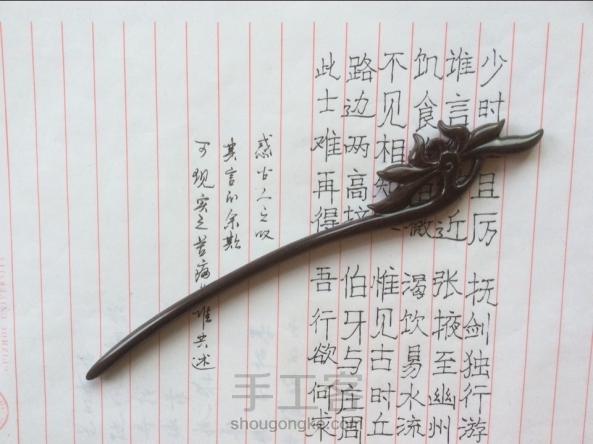 少时 且厉 抚剑独行游
谁言 近 张掖至幽州
饥食 薇 渴饮易水流
不见相知 惟见古时丘
路边两高坟 伯牙与庄周
此士难再得 吾行欲何求
感古人之叹
其言的余欺
可现实之苦痛 谁共述
手工客
shougongke.com